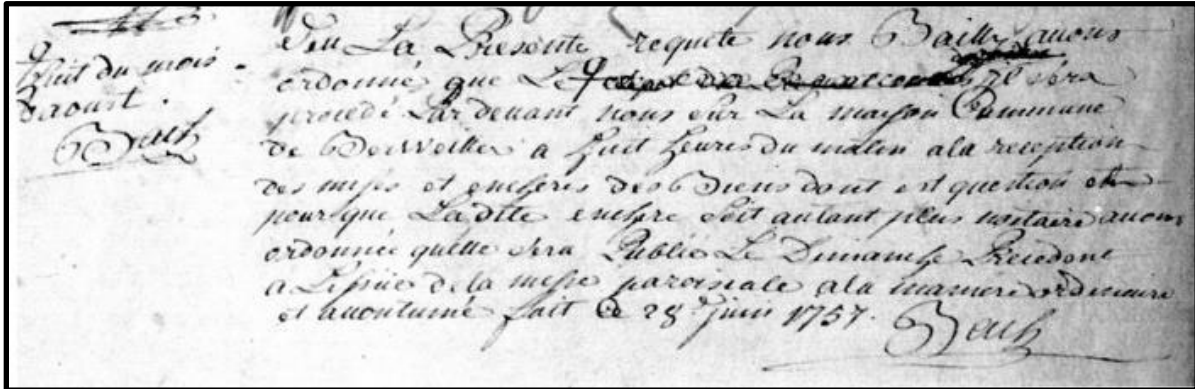 huit du mois
daoust.
Bach
Veu La Presente requete nous Bailly avons
ordonné que Le il sera
procedé Pardevant nous sur La maison Commune
de Berviller a huit heures du matin ala reception
des mises et encheres des Biens dont est question
pour que Ladite enchere soit autant plus notaire avons
ordonnée quelle sera Publié Le Dimanche Precedent
a L'issüe de la messe paroissiale ala maniere ordinaire
et acoutumé fait ce 28e juin 1757.
Bach